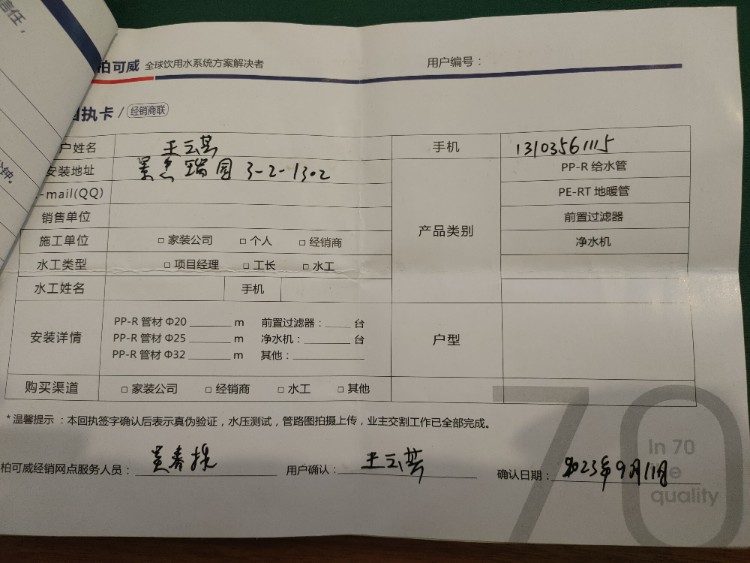 责任，
钟。
柏可威 全球饮用水系统方案解决者 用户编号：
回执卡 / 经销商联
户姓名 王云芸 手机 13103561115
安装地址 3-2-1302 PP-R 给水管
-mail(QQ) PE-RT 地暖管
销售单位 产品类别 前置过滤器
施工单位 □ 家装公司 □ 个人 □ 经销商 净水机
水工类型 □ 项目经理 □ 工长 □ 水工
水工姓名 手机
安装详情 PP-R 管材 Φ20 ______ m 前置过滤器：____ 台 户型
PP-R 管材 Φ25 ______ m 净水机：____ 台
PP-R 管材 Φ32 ______ m 其他：____
购买渠道 □ 家装公司 □ 经销商 □ 水工 □ 其他
*温馨提示：本回执签字确认后表示真伪验证，水压测试，管路图拍摄上传，业主交割工作已全部完成。
柏可威经销网点服务人员： 用户确认：王云芸 确认日期：2023年9月11日
70
In 70
quality